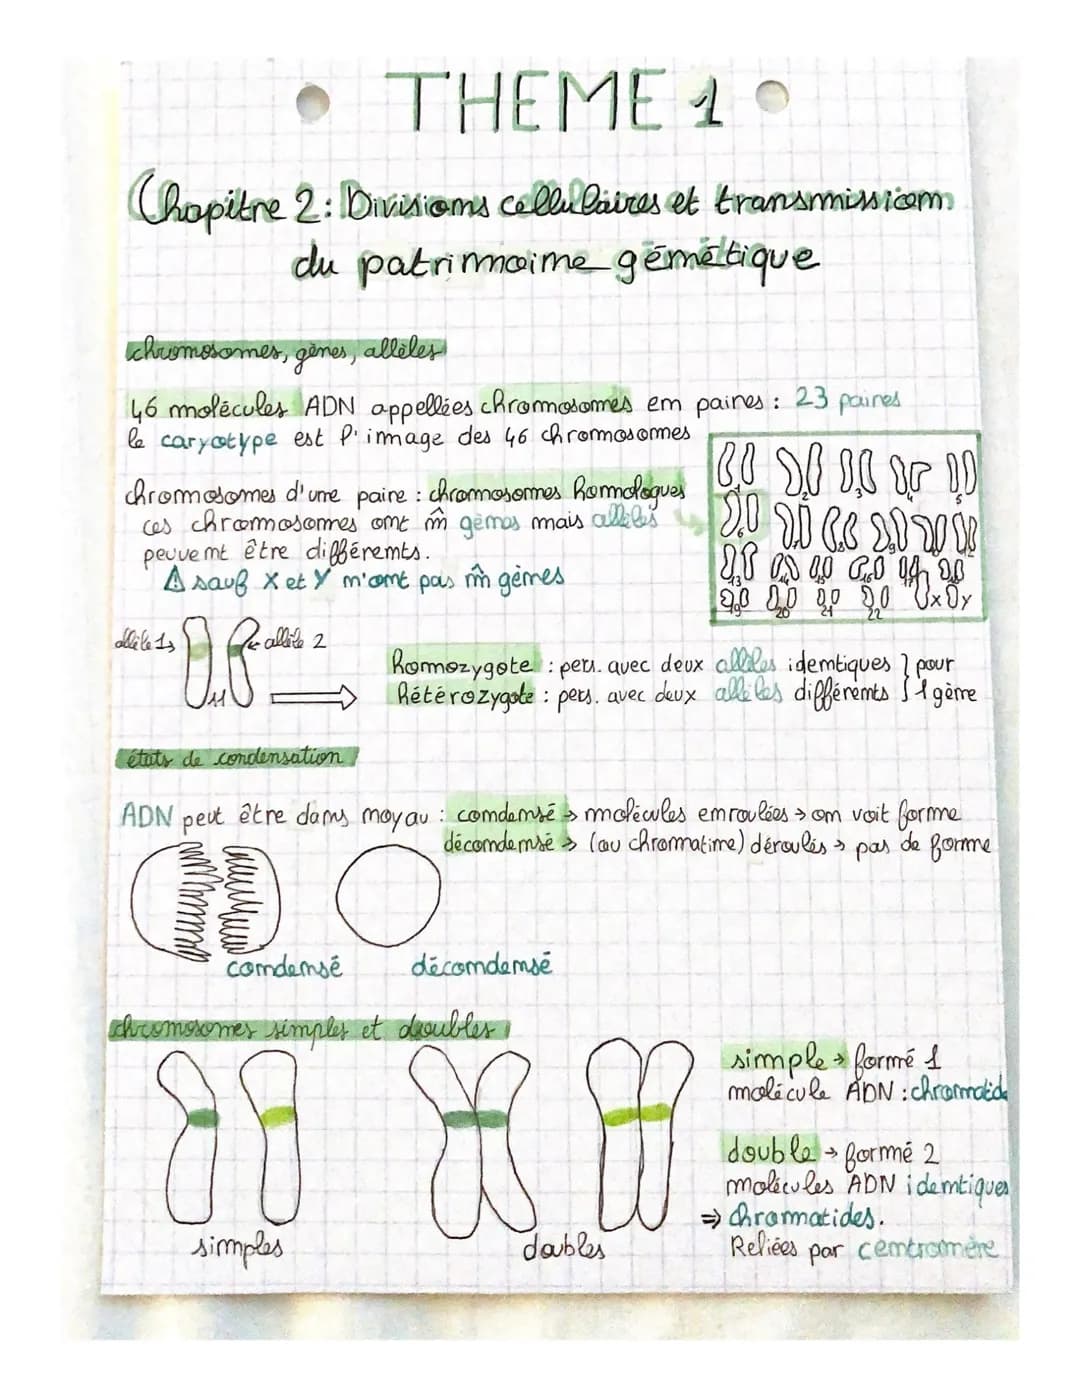 THEME 1
Chapitre 2 : Divisions cellulaires et transmission
du patrimoine génétique
chromosomes, gènes, allèles
46 molécules ADN appellées chromosomes en paires : 23 paires
le caryotype est l'image des 46 chromosomes
chromosomes d'une paire : chromosomes homologues
ces chromosomes ont m̂ gènes mais allèles
peuvent être différents.
⚠ sauf X et Y n'ont pas m̂ gènes
1 2 3 4 5
6
13 14 15 16 17
19 20 21 22 x y
allèle 1 allèle 2
11
homozygote : pers. avec deux allèles identiques } pour
hétérozygote : pers. avec deux allèles différents } 1 gène
états de condensation
ADN peut être dans noyau : condensé → molécules enroulées → on voit forme
décondensé → (ou chromatine) déroulés → pas de forme
condensé décondensé
chromosomes simples et doubles
simple → formé 1
molécule ADN : chromatide
double → formé 2
molécules ADN identiques
⇒ chromatides.
Reliées par centromère
simples doubles